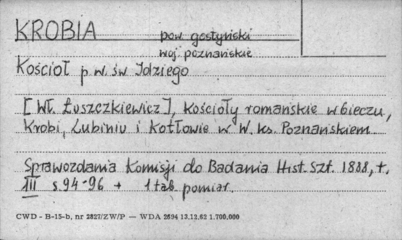 KROBIA pow. gostyński
woj. poznańskie
Kościół p.w. św Idziego
[Wł. Łuszczkiewicz], Kościoły romańskie w Gieczu,
Krobi, Lubiniu i Kotłowie w W. Ks. Poznańskiem
Sprawozdania Komisji do Badania Hist. Szt. 1888, t.
III s. 94-96 + 1 tab. pomiar.
CWD - B-15-b, nr 2827/ZW/P — WDA 2694 13.12.62 1.700.000